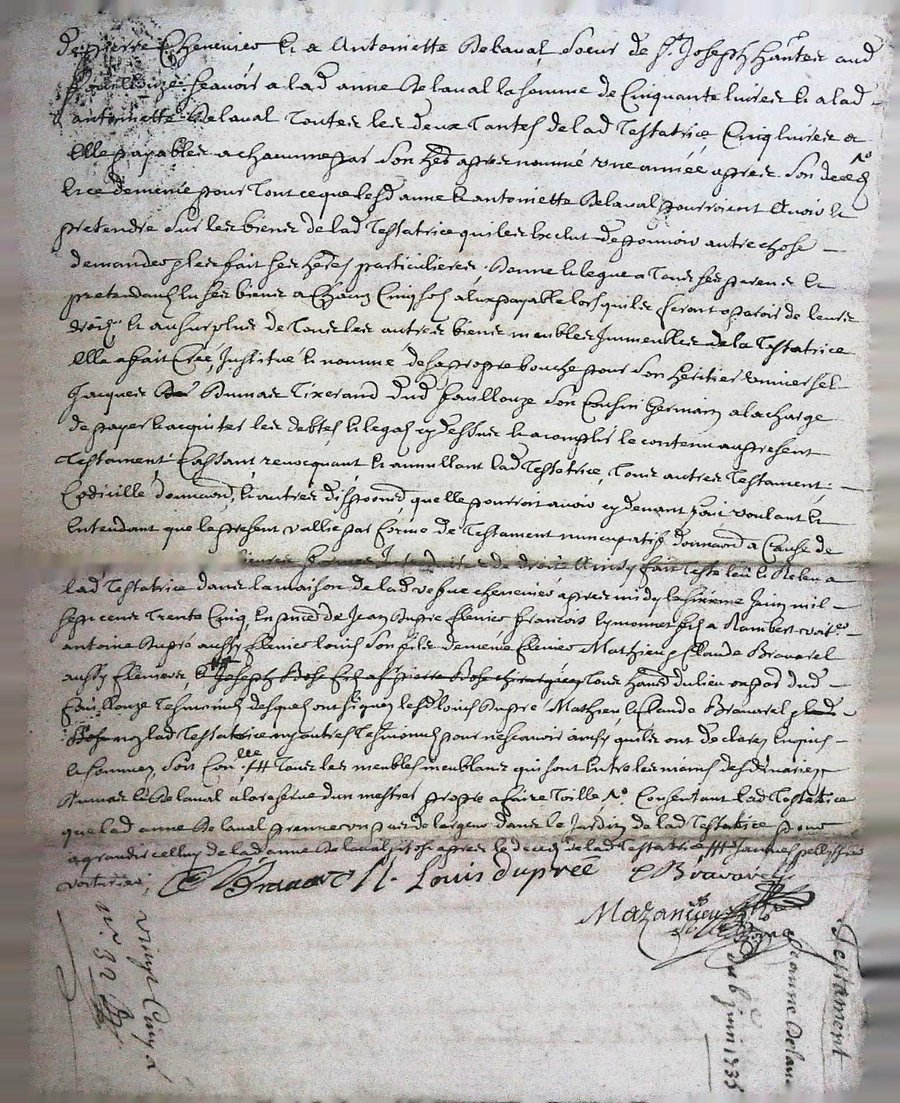 de pierre Chenevier & a Antoinette Delaval Soeur de St Joseph habtes aud
fouillouze scavoir a lad anne Delaval la somme de Cinquante livres & a lad
antoinette Delaval Toutes les deux Tantes de lad Testatrice Cinq livres
Elle payables a chacune par Son her apres nommé une année apres Son deces
& ce demeure pour Tout ce que lesd anne & antoinette Delaval pourroient avoir &
pretendre Sur les biens de lad Testatrice qui les Exclut de pouvoir autre chose
demander & les fait Ses heres particulieres Donne & legue a Tous Ses parens &
pretendans en Ses biens a Chacun Cinq sols a eux payable lorsquils feront aparoir de leurs
droits & au Surplus de Tous les autres biens meubles Immeubles de la Testatrice
Elle a fait Crée, Institue & nomme de sa propre bouche pour Son heritier universel
Jacques Dumas Tixerand dud fouillouze Son Cousin Germain a la charge
de payer & acquiter les debtes & legats cy dessus & acomplir le contenu au present
Testament Cassant revocquant & annullant lad Testatrice, Tous autres Testament
Codicille donnaond, & autres dispoond quelle pourroit avoir cy devant fait voulant &
Entendant que le present vallie par forme de Testament nuncupatif donnaond a Cause de
de droit Ainsy fait Testé leu & Releu a
lad Testatrice dans la maison de lad vefve chenevier apres midy le Sixieme Juin mil
Sept cens Trente Cinq En pnce de Jean Dupré francois Rambert
antoine Dupré aussy louis Son fils Mathieu & Claude Bravard
aussy & Joseph Bose fils a pierre Bose Tous habts du lieu dud
fouillouze Tesmoins desquels ont Signez lesd louis Dupré Mathieu & Claude Bravard
non lad Testatrice ny autres Tesmoins pour ne scavoir ainsy quils ont declarez Enquis
& Sommez Soit Con lle Tous les meubles meublans qui sont Entre les mains desd maries
Dumas & Delaval a la reserve dun mestier propre a faire Toille Consentant lad Testatrice
que lad anne Delaval prenne un de largeur dans le Jardin de lad Testatrice pour
agrandir celluy de lad anne Delaval apres le deces de lad Testatrice
voiturier
Bravard M. Louis dupreé C Bravard
Mazancieu
Testament
Jeanne Delaval
du 6 juin 1735
vingt Cinq
no 32